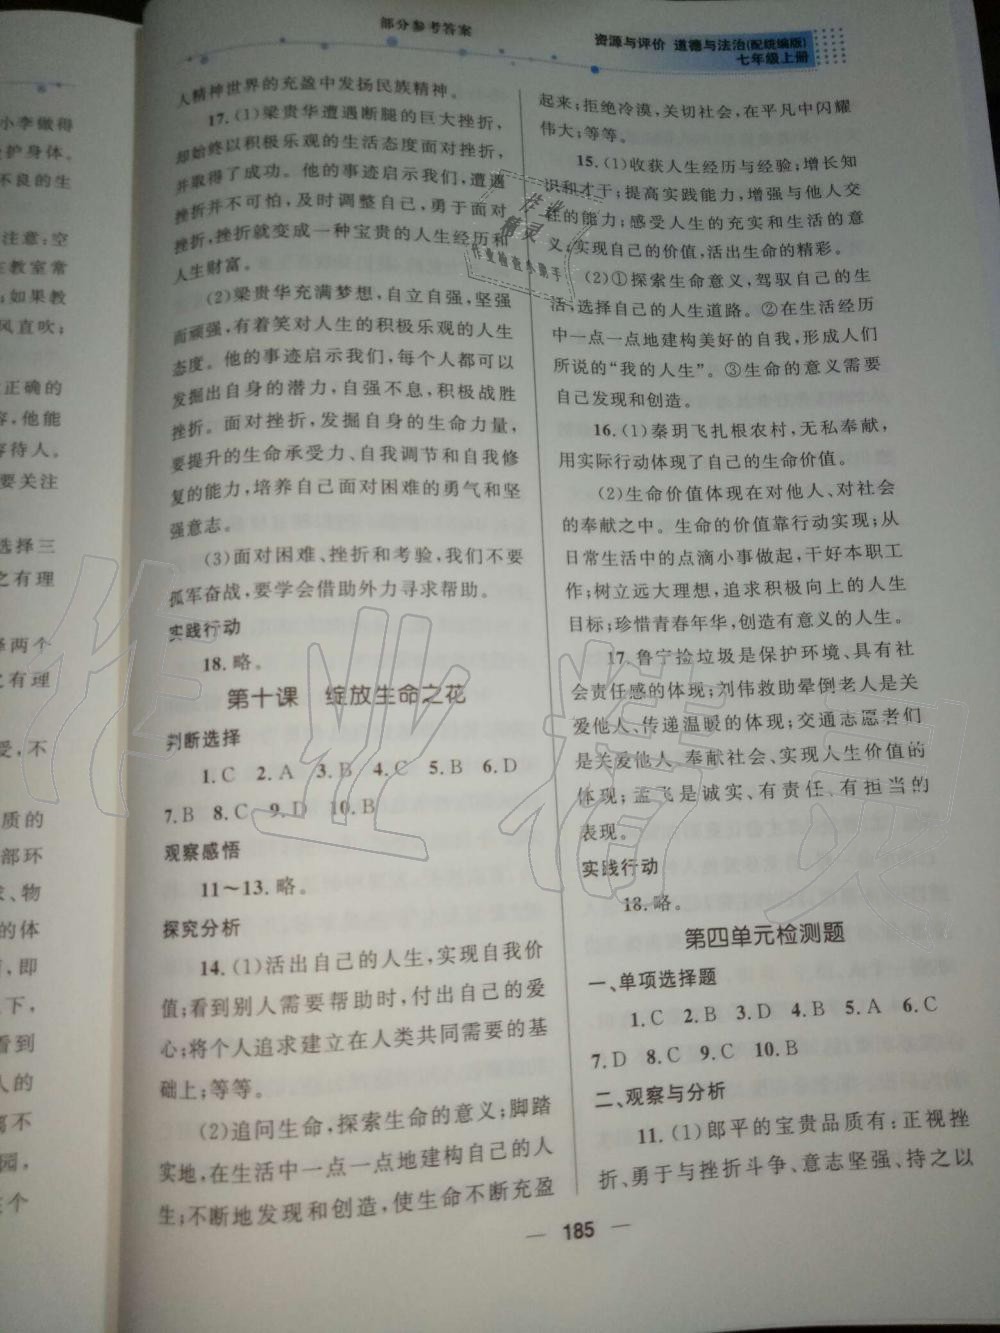 部分参考答案
资源与评价 道德与法治(配统编版)
七年级上册
小李做得
护身体。
不良的生
注意:空
在教室常
;如果教
风直吹;
正确的
容,他能
容待人。
要关注
选择三
之有理
择两个
之有理
受,不
质的
部环
求、物
的体
,即
下,
看到
人的
离不
园,
个
人精神世界的充盈中发扬民族精神。
17.(1)梁贵华遭遇断腿的巨大挫折,
却始终以积极乐观的生活态度面对挫折,
并取得了成功。他的事迹启示我们,遭遇
挫折并不可怕,及时调整自己,勇于面对
挫折,挫折就变成一种宝贵的人生经历和
人生财富。
(2)梁贵华充满梦想,自立自强,坚强
而顽强,有着笑对人生的积极乐观的人生
态度。他的事迹启示我们,每个人都可以
发掘出自身的潜力,自强不息,积极战胜
挫折。面对挫折,发掘自身的生命力量,
要提升的生命承受力、自我调节和自我修
复的能力,培养自己面对困难的勇气和坚
强意志。
(3)面对困难、挫折和考验,我们不要
孤军奋战,要学会借助外力寻求帮助。
实践行动
18.略。
第十课 绽放生命之花
判断选择
1.C 2.A 3.B 4.C 5.B 6.D
7.B 8.C 9.D 10.B
观察感悟
11~13.略。
探究分析
14.(1)活出自己的人生,实现自我价
值;看到别人需要帮助时,付出自己的爱
心;将个人追求建立在人类共同需要的基
础上;等等。
(2)追问生命,探索生命的意义;脚踏
实地,在生活中一点一点地建构自己的人
生;不断地发现和创造,使生命不断充盈
起来;拒绝冷漠,关切社会,在平凡中闪耀
伟大;等等。
15.(1)收获人生经历与经验;增长知
识和才干;提高实践能力,增强与他人交
往的能力;感受人生的充实和生活的意
义;实现自己的价值,活出生命的精彩。
(2)①探索生命意义,驾驭自己的生
活,选择自己的人生道路。②在生活经历
中一点一点地建构美好的自我,形成人们
所说的“我的人生”。③生命的意义需要
自己发现和创造。
16.(1)秦玥飞扎根农村,无私奉献,
用实际行动体现了自己的生命价值。
(2)生命价值体现在对他人、对社会
的奉献之中。生命的价值靠行动实现;从
日常生活中的点滴小事做起,干好本职工
作;树立远大理想,追求积极向上的人生
目标;珍惜青春年华,创造有意义的人生。
17.鲁宁捡垃圾是保护环境、具有社
会责任感的体现;刘伟救助晕倒老人是关
爱他人、传递温暖的体现;交通志愿者们
是关爱他人、奉献社会、实现人生价值的
体现;孟飞是诚实、有责任、有担当的
表现。
实践行动
18.略。
第四单元检测题
一、单项选择题
1.C 2.B 3.D 4.B 5.A 6.C
7.D 8.C 9.C 10.B
二、观察与分析
11.(1)郎平的宝贵品质有:正视挫
折、勇于与挫折斗争、意志坚强、持之以
185
作业
精灵
作业检查小助手
作业精灵